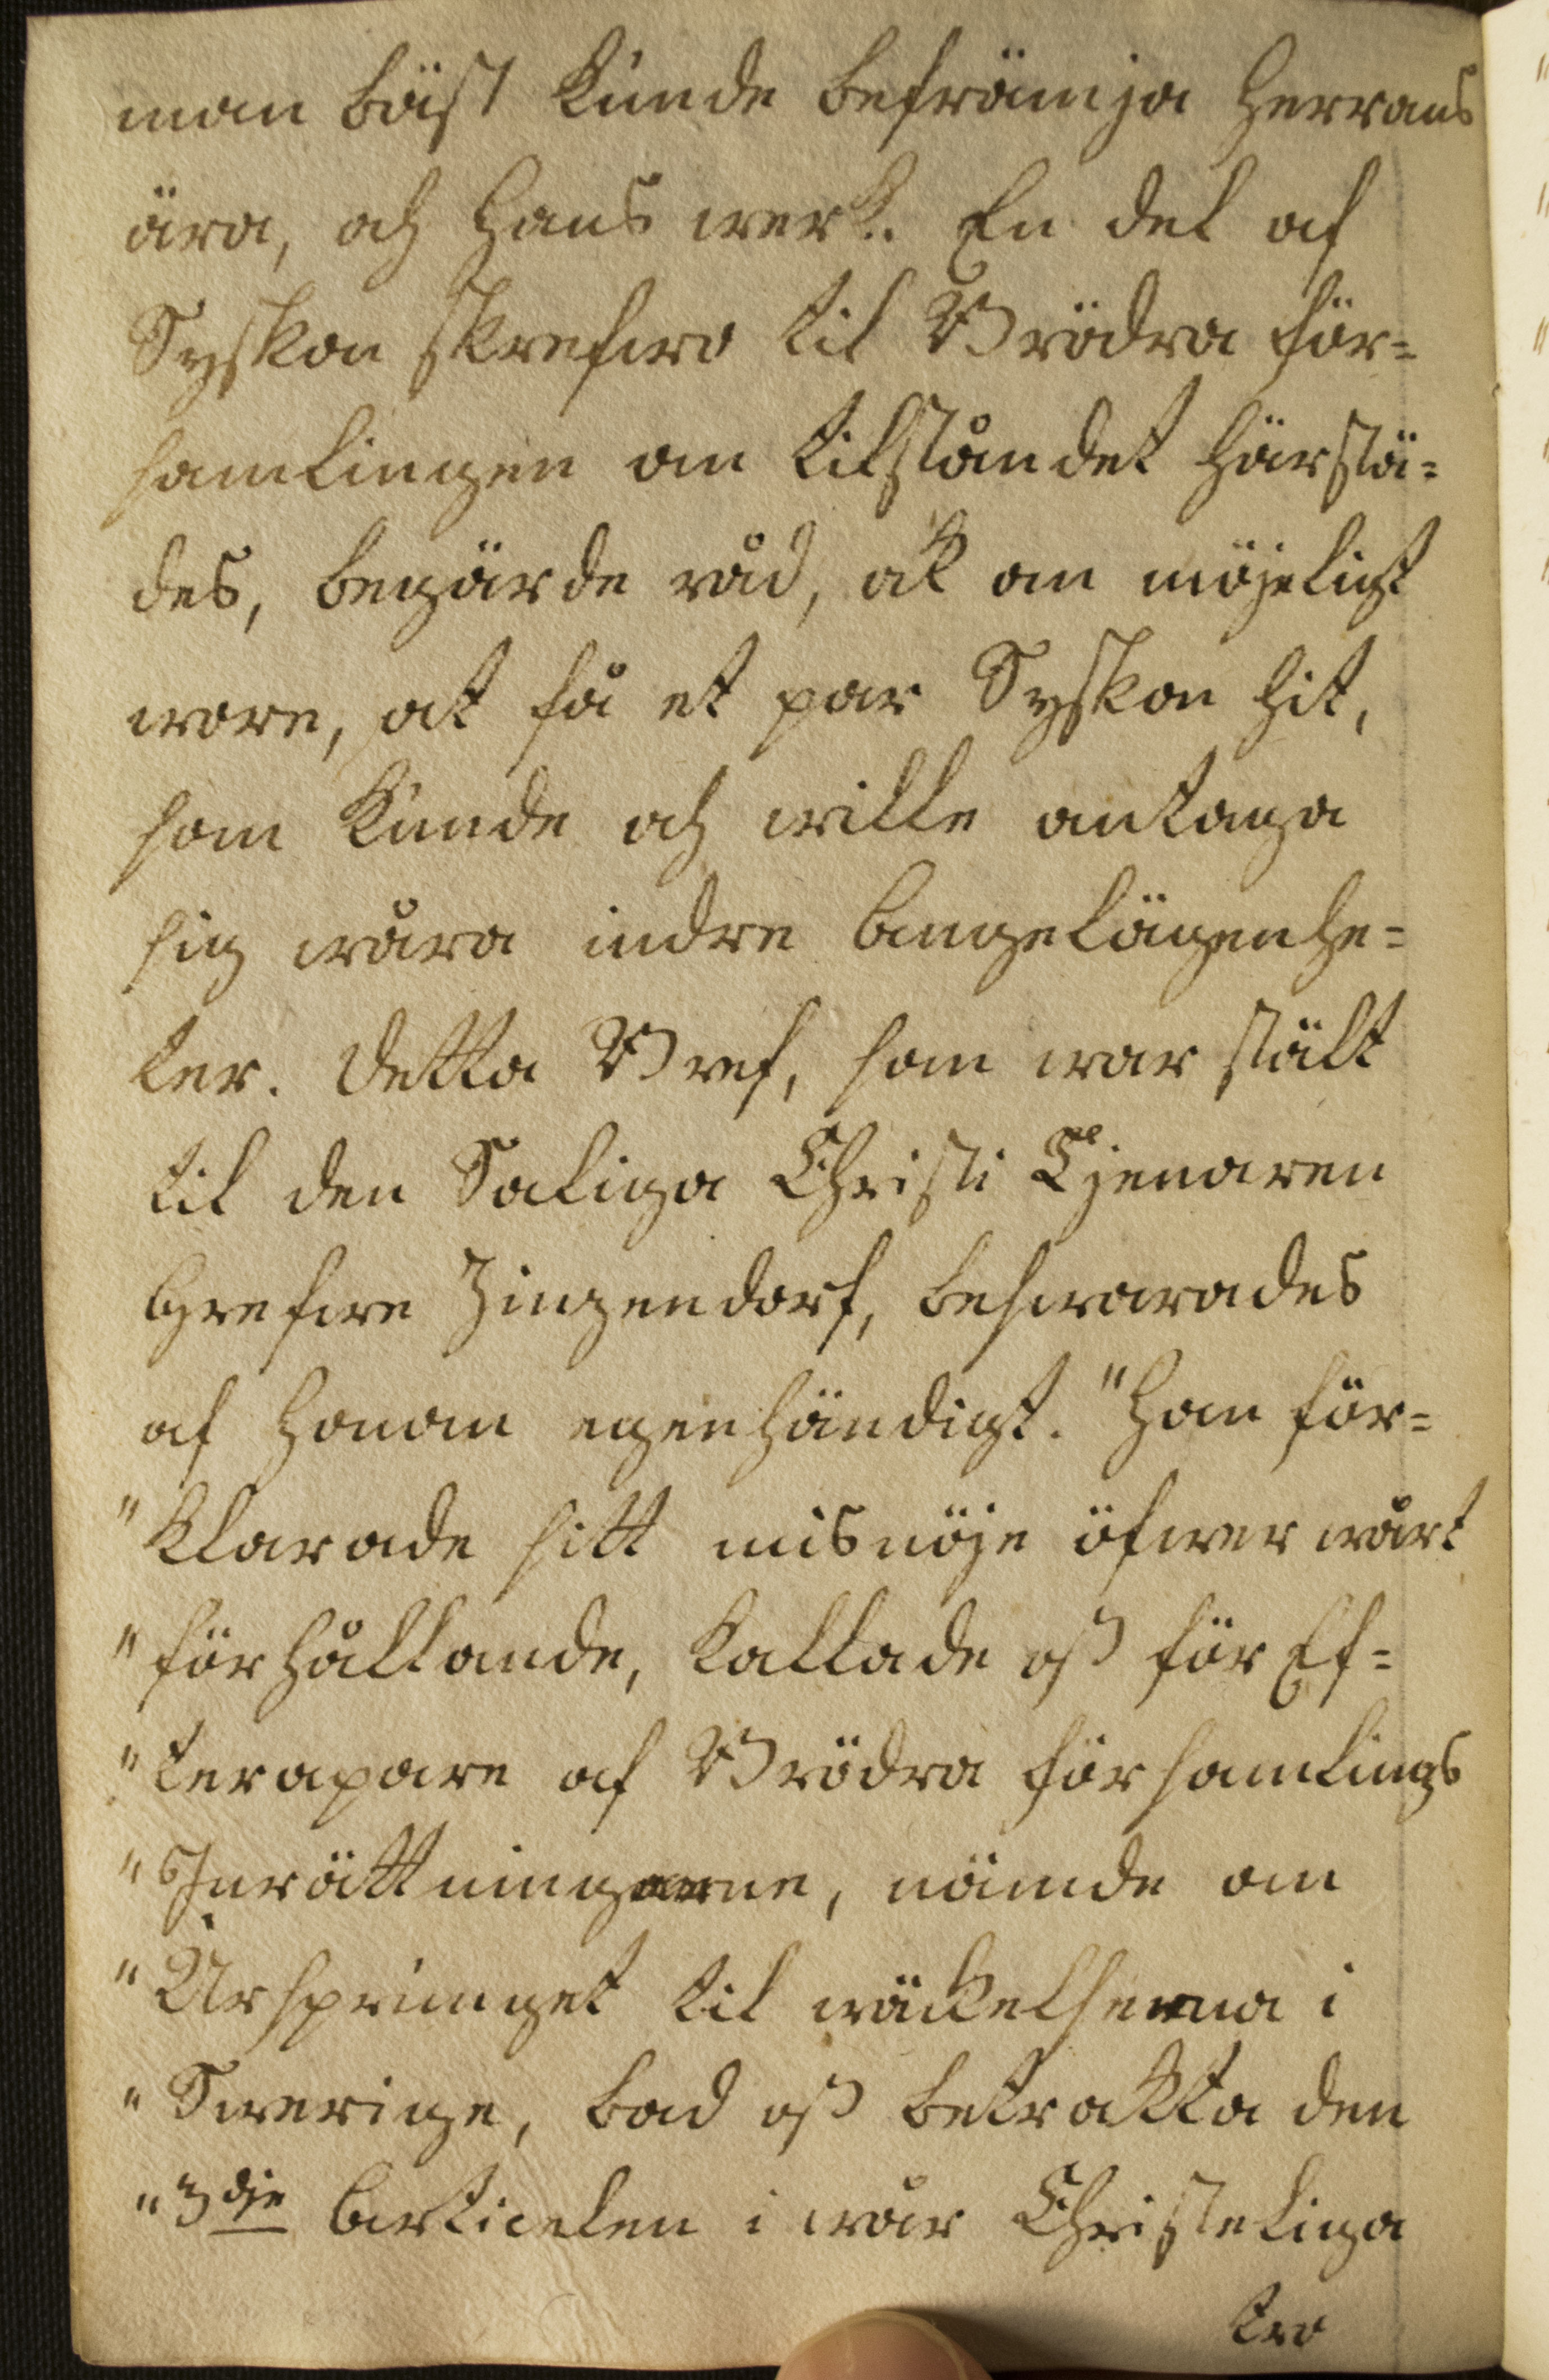 man bäst kunde befrämja Herrans
ära, och Hans werk. En del af
Syskon skrefwo til Brödra För=
samlingen om tilståndet härstä=
des, begärde råd, åk om möjeligt
wore, at få et par Syskon hit,
som kunde och wille antaga
sig wåra indre Angelägenhe=
ter. Detta Bref, som war stält
til den Saliga Christi Tjenaren
Grefwe Zinzendorf, beswarades
af honom egenhändigt. "Han för=
"klarade sitt misnöje öfwer wårt
"förhållande, kallade oss för Ef=
"terapare af Brödra Församlings
"Inrättningarne, nämde om
"Ursprunget til wäckelserna i
"Swerige, bad oss betrakta den
"3dje Articelen i wår Christeliga
tro